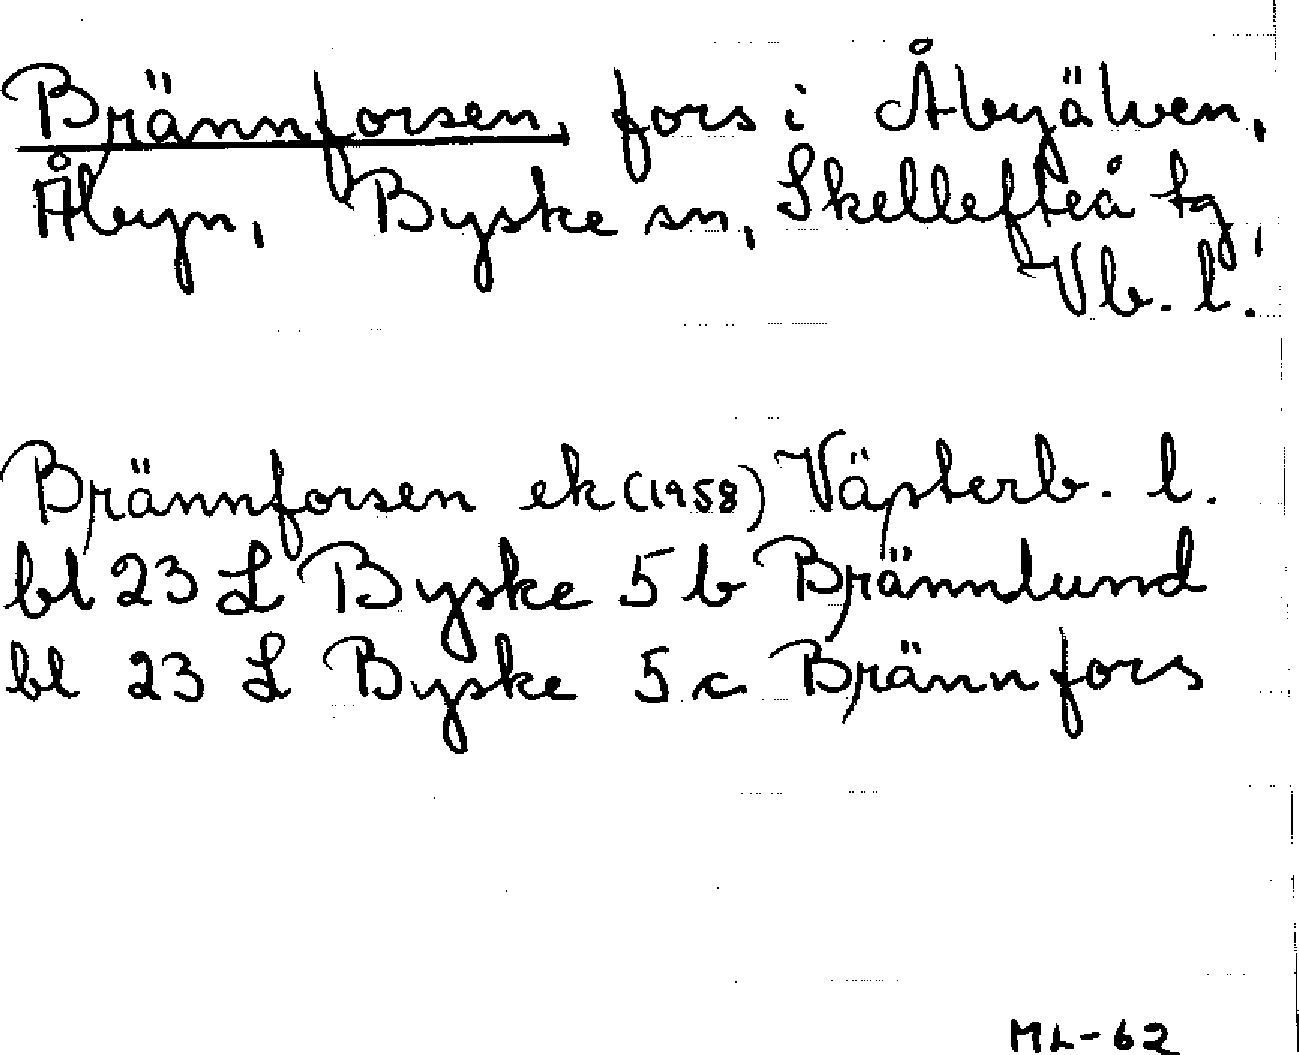 Brännforsen, fors i Åbyälven,
Åbyn, Byske sn, Skellefteå tg,
Vb. l.
Brännforsen ek (1958) Västerb. l.
bl 23 L Byske 5 b Brännlund
bl 23 L Byske 5 c Brännfors
ML-62